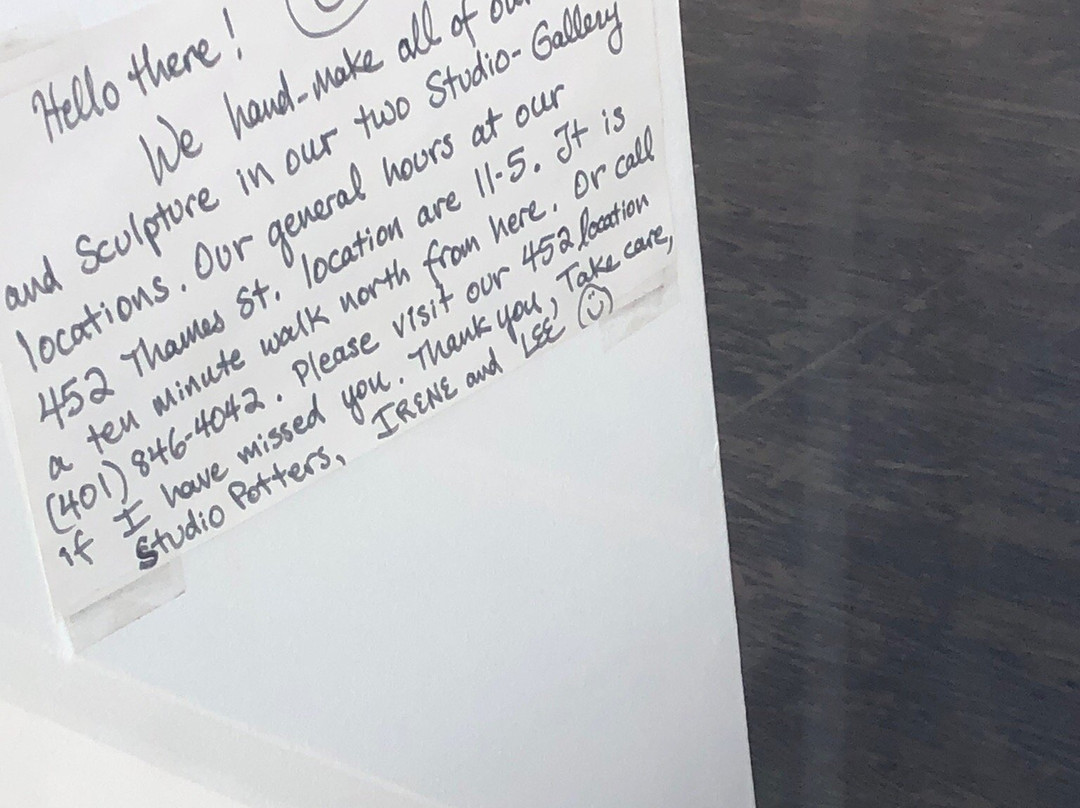 Hello there!
We hand-make all of our
and Sculpture in our two Studio-Gallery
locations. Our general hours at our
452 Thames St. location are 11-5. It is
a ten minute walk north from here. Or call
(401) 846-4042. Please visit our 452 location
if I have missed you. Thank you, Take care,
Studio Potters, IRENE and LEE